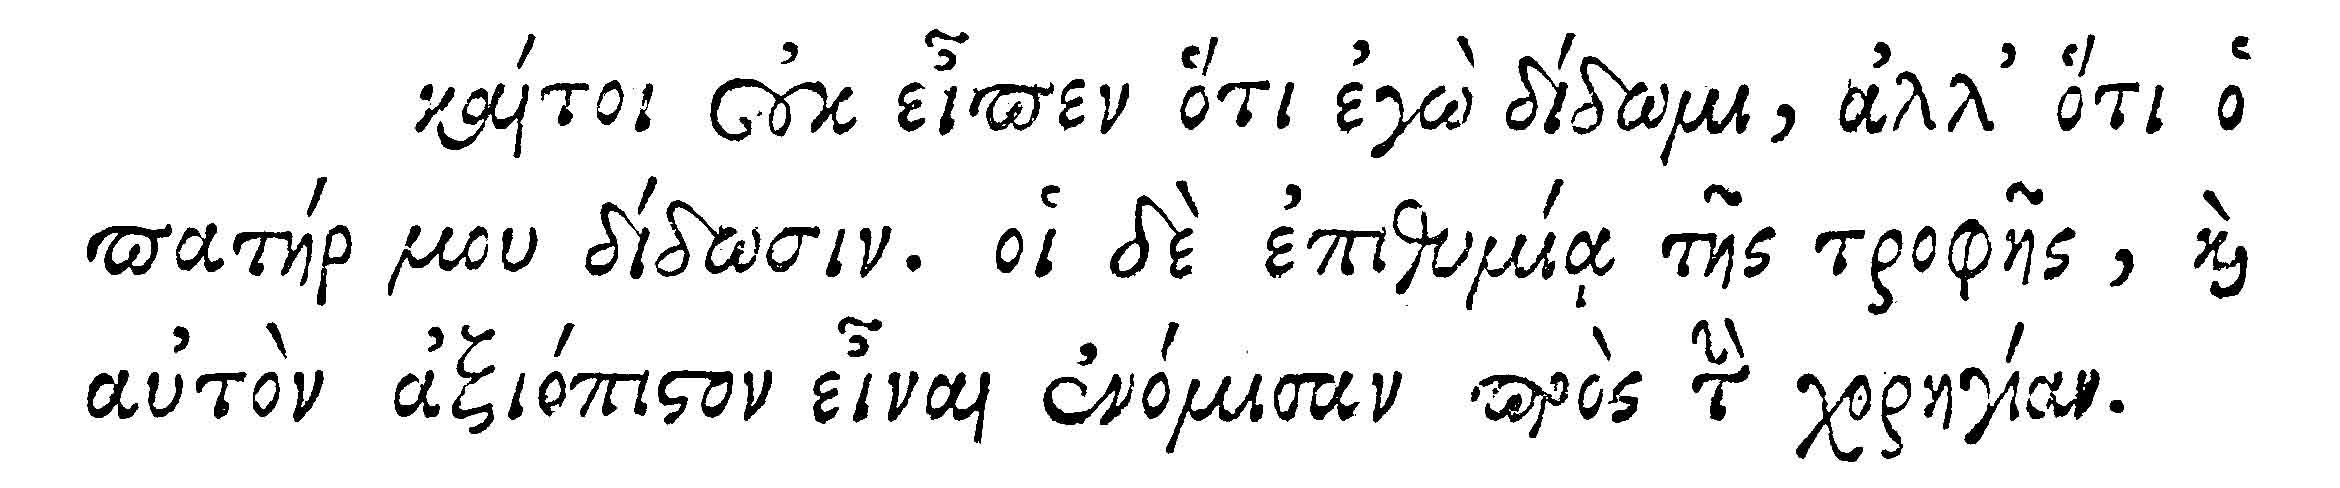 καίτοι οὐκ εἶπεν ὅτι ἐγὼ δίδωμι, ἀλλ᾽ ὅτι ὁ
πατήρ μου δίδωσιν. οἱ δὲ ἐπιθυμίᾳ τῆς τροφῆς, κὶ
αὐτὸν ἀξιόπιστον εἶναι ἐνόμισαν πρὸς τὴν χορηγίαν.